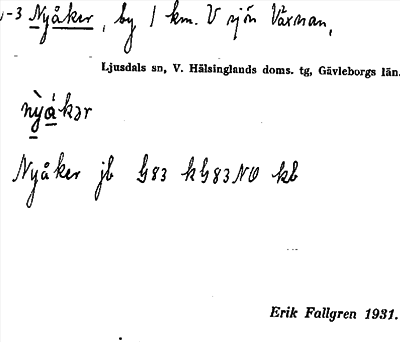 -3 Nyåker, by 1 km. V sjön Växnan,
Ljusdals sn, V. Hälsinglands doms. tg, Gävleborgs län.
nỳǻkər
Nyåker jb G83 kG83NO kb
Erik Fallgren 1931.